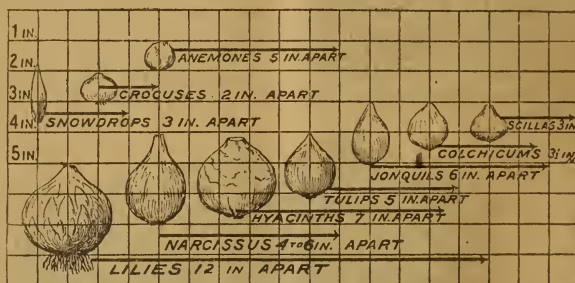 1 IN.
ANEMONES 5 IN. APART
2 IN.
CROCUSES 2 IN. APART
3 IN.
4 IN. SNOWDROPS 3 IN. APART
SCILLAS 3 IN.
COLCHICUMS 3½ IN.
5 IN.
JONQUILS 6 IN. APART
TULIPS 5 IN. APART
HYACINTHS 7 IN. APART
NARCISSUS 4 TO 6 IN. APART
LILIES 12 IN APART